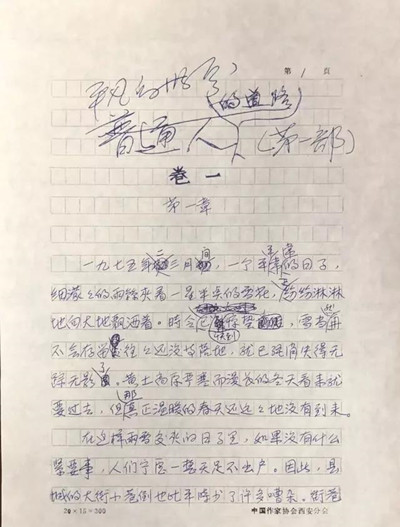 第1页
平凡的世界
普通人的道路
（第一部）
卷一
第一章
一九七五年二三月间，一个平平常常的日子，
细蒙々的雨丝夹着一星半点的雪花，正纷纷淋淋
地向大地飘洒着。时令已快到惊蛰，雪当然再
不会存留，往々还没等落地，就已经消失得无
踪无影了。黄土高原严寒而漫长的冬天看来就
要过去，但那真正温暖的春天还远々地没有到来。
在这样雨雪交加的日子里，如果没有什么
紧要事，人们宁愿一整天足不出户。因此，县
城的大街小巷倒也比平时少了许多嘈杂。街巷
20×15＝300
中国作家协会西安分会